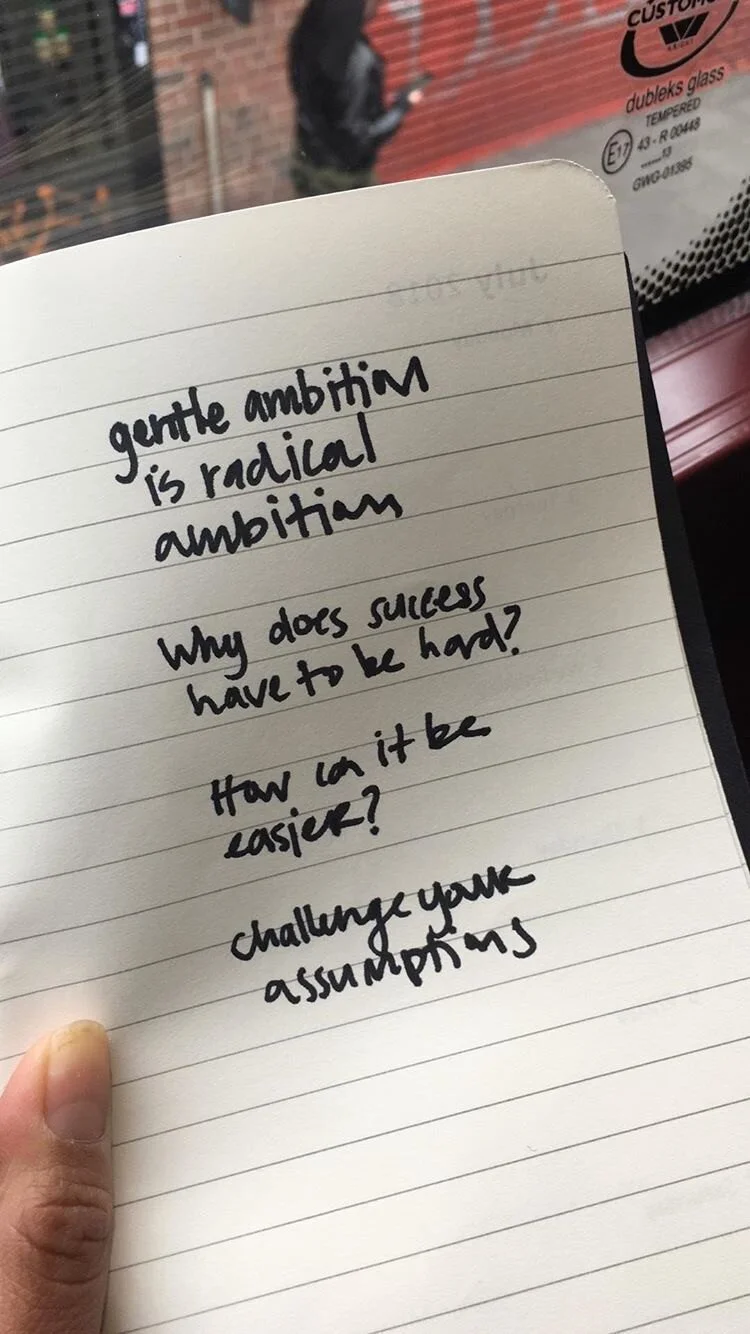 CUSTOM
dubleks glass
TEMPERED
43 - R 00448
GWG-01395
E17
July 2018
gentle ambition
is radical
ambition
Why does success
have to be hard?
How can it be
easier?
challenge your
assumptions